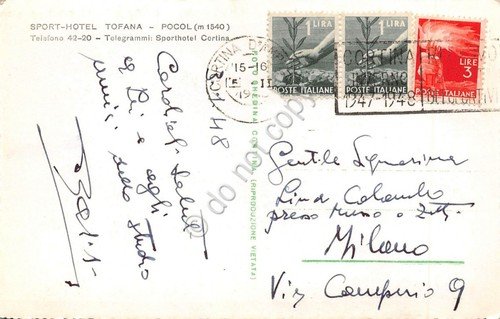 SPORT-HOTEL TOFANA - POCOL (m 1540)
Telefono 42-20 - Telegrammi: Sporthotel Cortina
3-1-48
Cordiali saluti
a Lei e agli
amici dello studio
FOTO GHEDINA - CORTINA (RIPRODUZIONE VIETATA)
CORTINA D'
15-16
1 LIRA
POSTE ITALIANE
1 LIRA
POSTE ITALIANE
LIRE
3
POSTE ITALIANE
CORTINA
1947-1948
Gentile Signorina
Lina Colando
presso Musso e
Milano
Via Camperio 9
do not copy